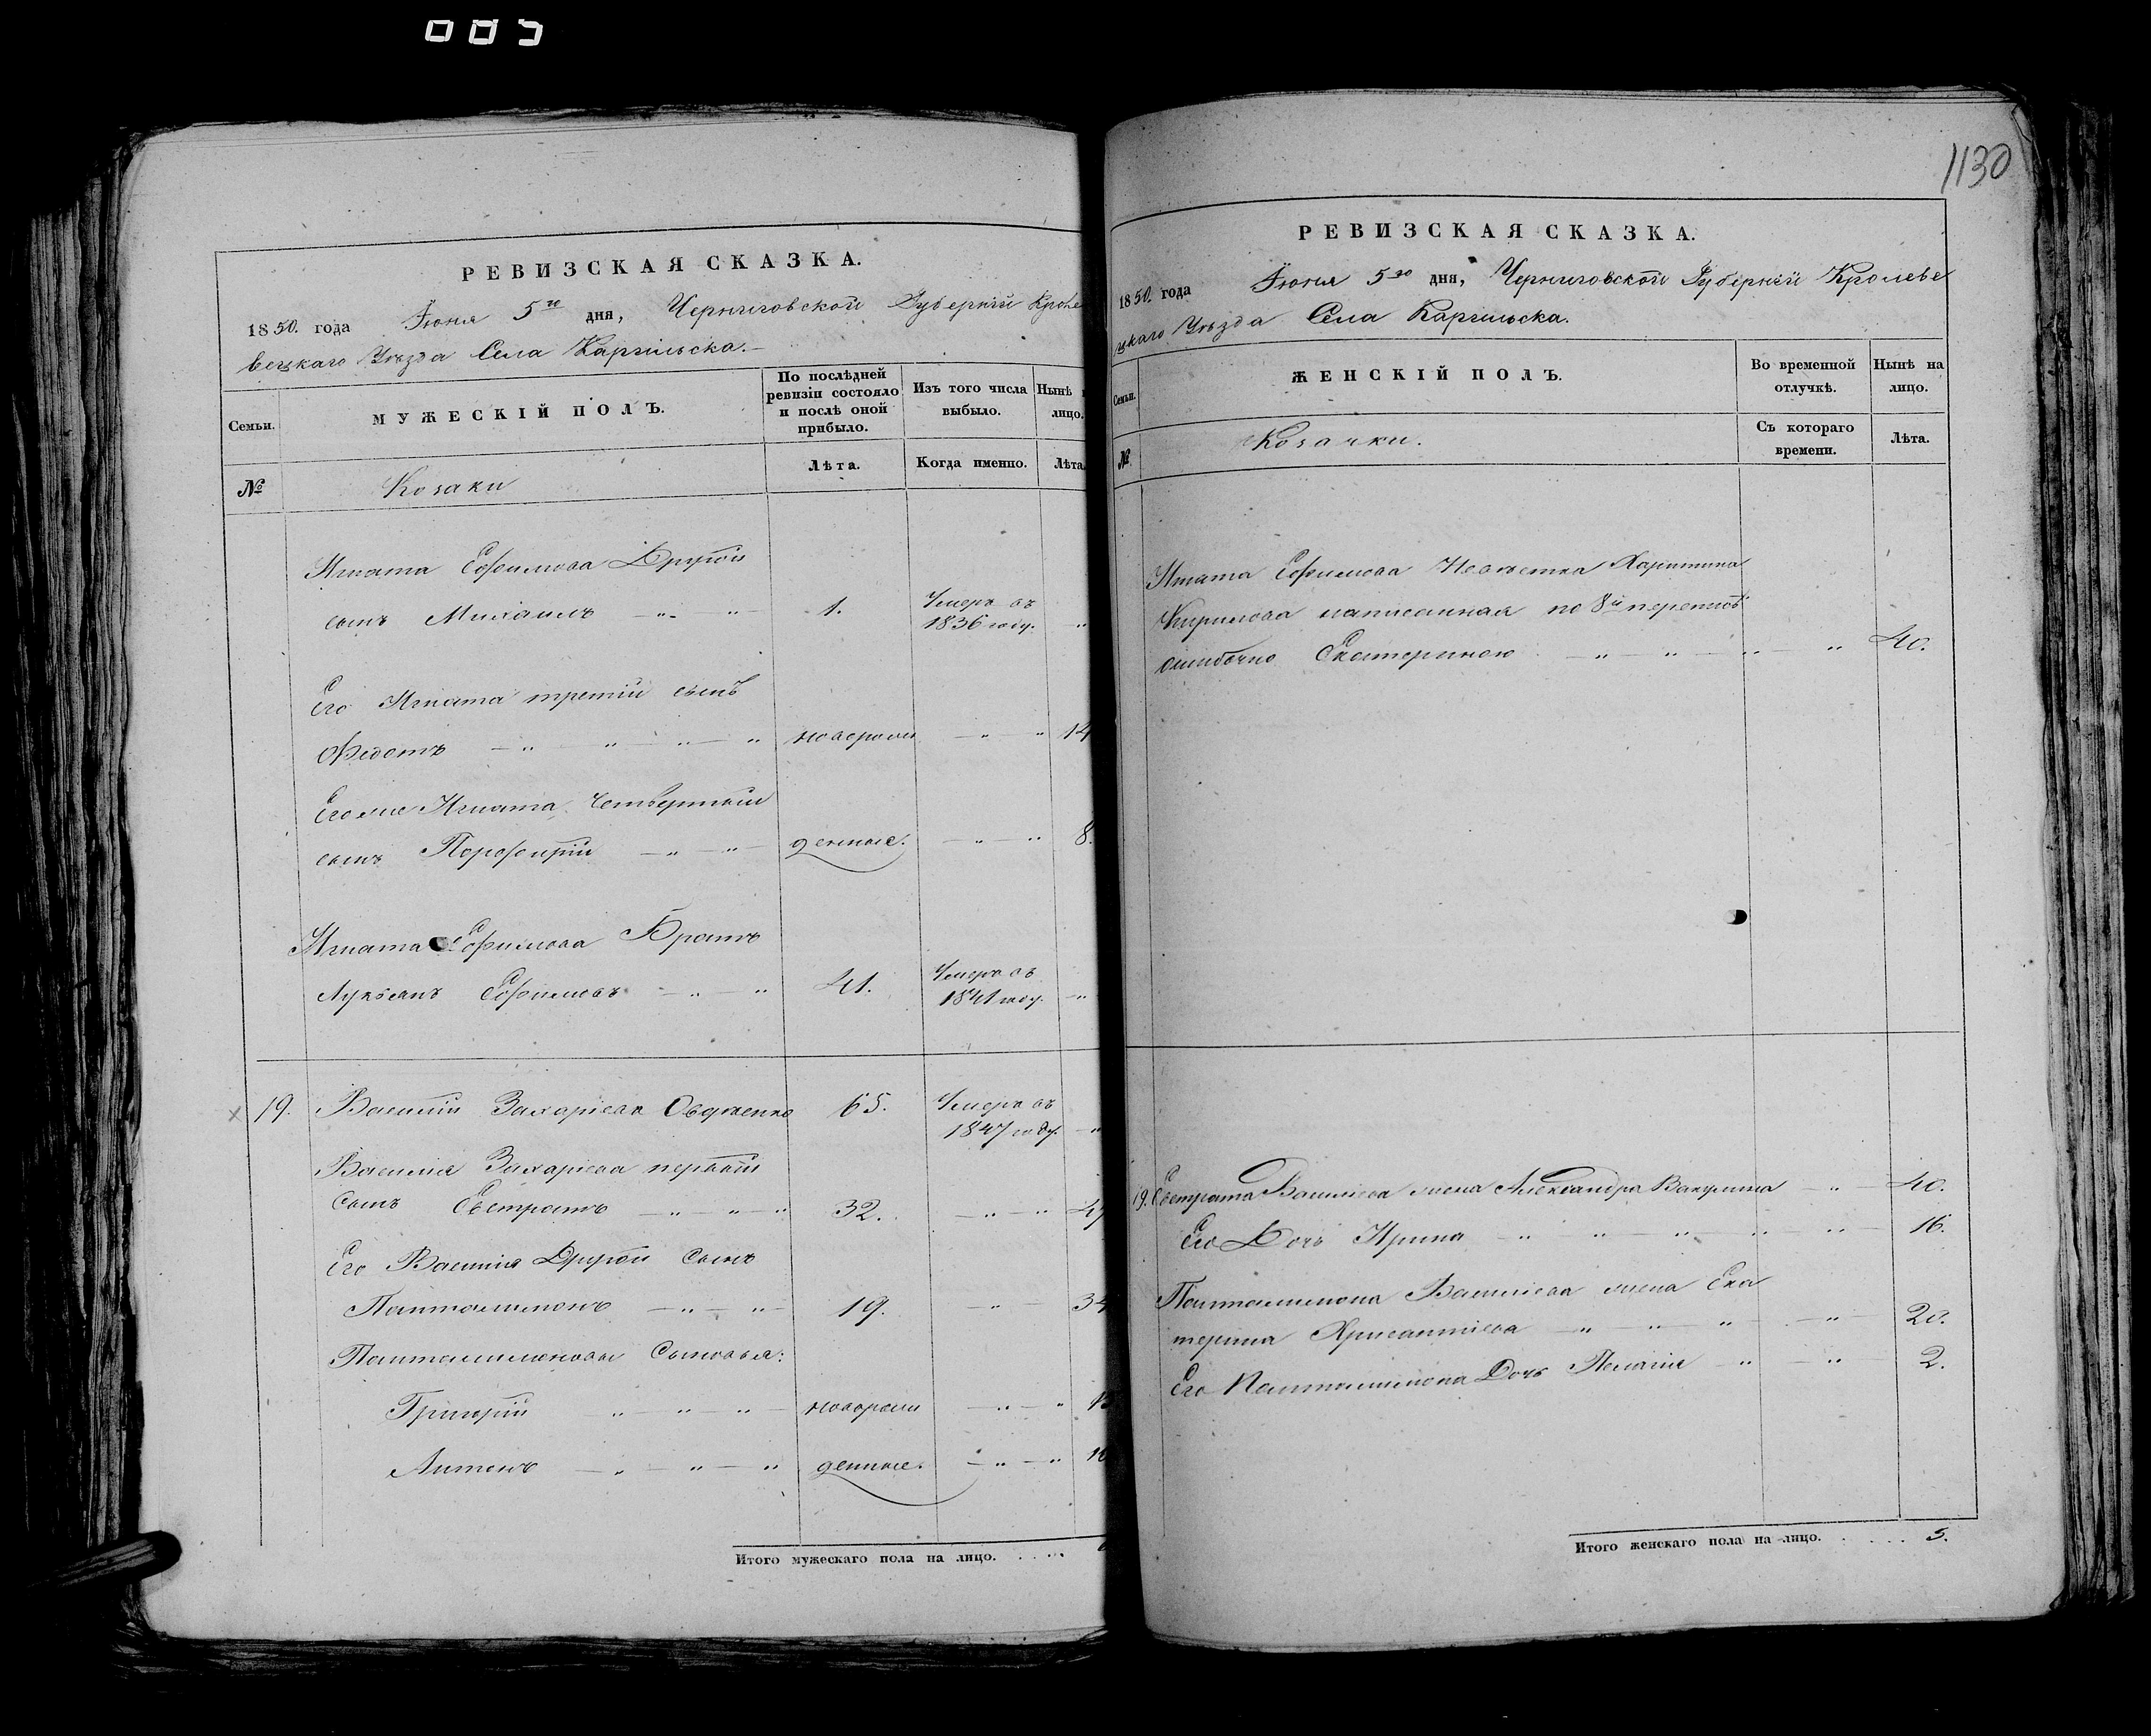 1130
РЕВИЗСКАЯ СКАЗКА.
1850. года Іюня 5го дня, Черниговской Губерніи Кроле
вецкаго Уѣзда Села Каргильска.
Семьи.
МУЖЕСКІЙ ПОЛЪ.
По послѣдней ревизіи состояло и послѣ оной прибыло.
Изъ того числа выбыло.
Нынѣ лицо.
№
Козаки
Лѣта.
Когда именно.
Лѣта.
Игната Ефимова Другой
сынъ Михаилъ 1. Умеръ въ 1836 году.
Его Игната третій сынъ
Федотъ новорож 14
Его же Игната Четвертый
сынъ Порфирій денные. 8.
Игната Ефимова Братъ
Лукьянъ Ефимовъ 41. Умеръ въ 1841 году.
19. Василій Захаріевъ 65. Умеръ въ 1847 году.
Василія Захаріева первый
сынъ Евстратъ 32. 47
Его Василія Другой Сынъ
Пантелимонъ 19. 34
Пантелимоновы Сыновья:
Григорій новорож 13
Антонъ денные. 10
Итого мужескаго пола на лицо.
РЕВИЗСКАЯ СКАЗКА.
1850. года Іюня 5го дня, Черниговской Губерніи Кролеве
цкаго Уѣзда Села Каргильска.
Семьи.
ЖЕНСКІЙ ПОЛЪ.
Во временной отлучкѣ.
Нынѣ на лицо.
№
Козачки.
Съ котораго времени.
Лѣта.
Игната Ефимова Невѣстка Харитина
Кирилова написанная по 8й переписи
ошибочно Екатериною 40.
19. Евстрата Василіева жена Александра Вакулина 40.
Его Дочь Ирина 16.
Пантелимона Василіева жена Ека
терина Хрисантіева 20.
Его Пантелимона Дочь Пелагія 2.
Итого женскаго пола на лицо. 5.